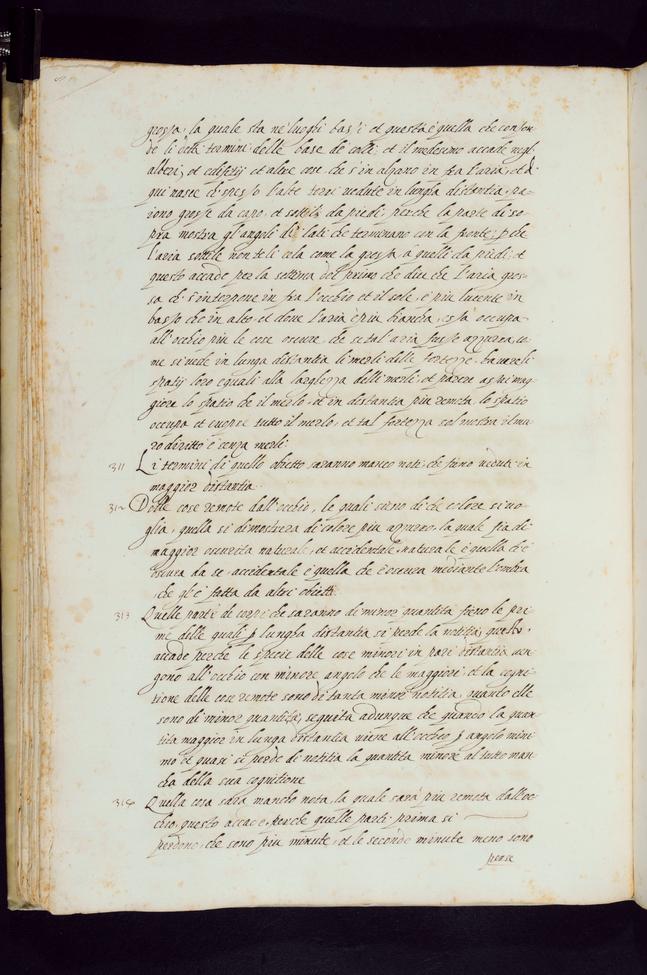 grossa, la quale sta ne luoghi bassi et questa è quella che confon
de li detti termini delle base de colli, et il medesimo accade negl
alberi, et edifitij et altre cose, che s'inalzano in fra l'aria, et di
qui nasce ch spesso l'alte torri vedute in lungha distantia, pa-
iono grosse da capo, et sottili da piedi, perche la parte di so-
pra mostra gl'angoli di lati che terminano con la fronte, p che
l'aria sottile non te li cela come la grossa à quelli da piedi, et
questo accade per la settima del primo che dice che l'aria gros-
sa ch s'interpone in fra l'occhio et il sole, e piu lucente in
basso che in alto, et dove l'aria è piu biancha, essa occupa
all'occhio piu le cose oscure, che se tal'aria fusse azzurra, co-
me si vede in lunga distantia li merli delle fortezze havere li
spatij loro equali alla larghezza delli merli, et parere assai mag-
giore lo spatio che il merlo, et in distantia piu remota lo spatio
occupa et cuopre tutto il merlo, et tal fortezza sol mostra il mu-
ro diritto e senza merli
311 Li termini di quello obietto saranno manco noti, che fieno veduti in
maggior distantia.
312 Delle cose remote dall'occhio, le quali sieno di che colore si vo-
glia, quella si dimostrera di colore piu azzuro, la quale fia di
maggior oscurita naturale, et accidentale, naturale è quella che è
oscura da se, accidentale è quella che è oscura mediante l'ombra
che gl'è fatta da altri obietti.
313 Quelle parti de corpi che saranno di minor quantita fieno le pri-
me delle quali p lungha distantia si perde la notitia, questo
accade perche le spetie delle cose minori in pari distantia ven-
gono all'occhio con minore angolo che le maggiori et la cogni-
tione delle cose remote sono di tanta minor notitia, quanto elle
sono di minor quantita, seguita adunque che quando la quan
tita maggior in lunga distantia viene all'occhio p angolo mini
mo et quasi si perde di notitia la quantita minore al tutto man-
cha della sua cognitione
314 Quella cosa sara mancho nota, la quale sarà piu remota dall'oc-
chio, questo accade, perche quelle parti prima si
perdono, che sono piu minute, et le seconde minute meno sono
perse